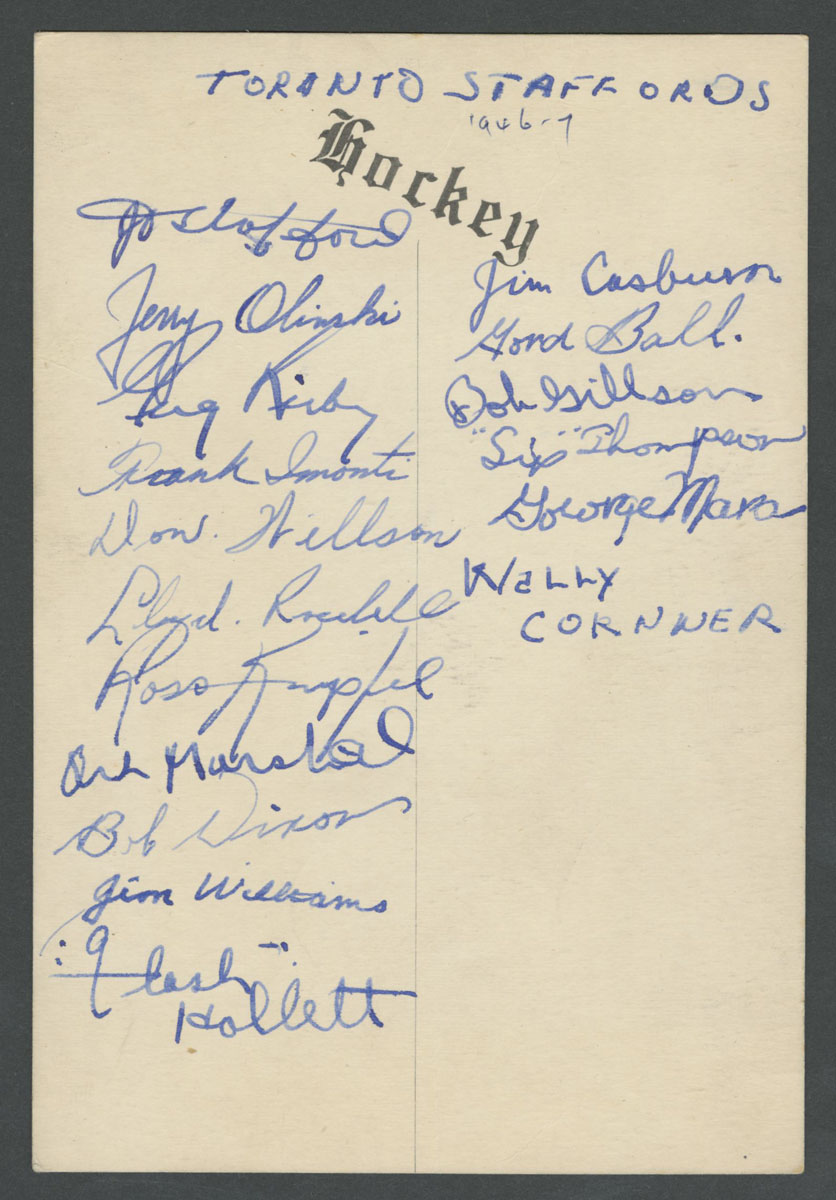 TORANTO STAFFORDS
1946-7
Hockey
Jo Stafford
Jerry Olinski
Kirby
Frank Imonti
Don. Willson
Lloyd.
Ross Knipfel
Marshal
Bob Dixon
Jim Williams
"Flash"
Hollett
Jim Casburn
Gord Ball.
Bob Gillson
"Sip" Thompson
George Mara
WALLY
CORNNER